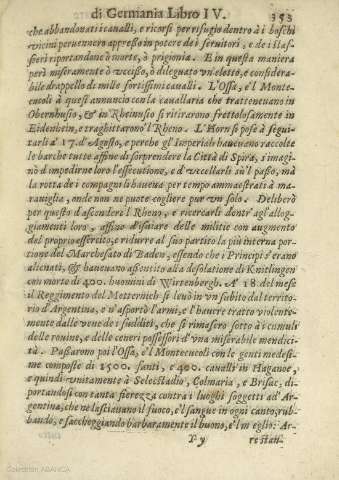 di Germania Libro IV. 353
che abbandonati i caualli, e ricorsi per rifugio dentro à i boschi
vicini peruennero appresso in potere de i seruitori, e de i las-
seri riportandone ò morte, ò prigionia. E in questa maniera
però miseramente ò vcciso, ò dileguato vn eletto, e considera-
bile drappello di mille fortissimi caualli. L'Ossa, e'l Monte-
cucoli à quest'annuncio con la cauallaria che tratteneuano in
Obernhusio, & in Rheinusio si ritirarono frettolosamente in
Eidenheim, e traghittarono'l Rheno. L'Horn si pose à segui-
tarli a' 17. d'Agosto, e perche gl'Imperiali haueuano raccolte
le barche tutte affine di sorprendere la Città di Spira, s'imagi-
nò d'impedirne loro l'essecutione, e d'vccellarli sù'l passo, mà
la rotta de i compagni li haueua per tempo ammaestrati à ma-
rauiglia, onde non ne puote cogliere pur vn solo. Deliberò
per questo d'ascendere'l Rheno, e ricercarli dentr'agl'allog-
giamenti loro, affine di suiare delle militie con augmento
del proprio essercito, e ridurre al suo partito la più interna por-
tione del Marchesato di Baden, essendo che i Principi s'erano
alienati, & haueuano assentito alla desolatione di Knitlingen
con morte di 400. huomini di Wirtenbergh. A' 18. del mese
il Reggimento del Metternich si leuò in vn subito dal territo-
rio d'Argentina, e n'asportò l'armi, e l'hauere tratto violente-
mente dalle vene de i sudditi, che si rimasero sotto à i cumuli
delle rouine, e delle ceneri possessori d'vna miserabile mendici-
tà. Passarono poi l'Ossa, e'l Montecucoli con le genti medesi-
me composte di 1500. fanti, e 400. caualli in Haganoe,
e quindi vnitamente à Selectstadio, Colmaria, e Brisac, di-
portandosi con tanta fierezza contra i luoghi soggetti ad Ar-
gentina, che ne lasciauano il fuoco, e'l sangue in ogni canto, rub-
bando, e saccheggiando barbaramente il buono, e'l meglio: Ar-
Y y restati
Colección ABANCA